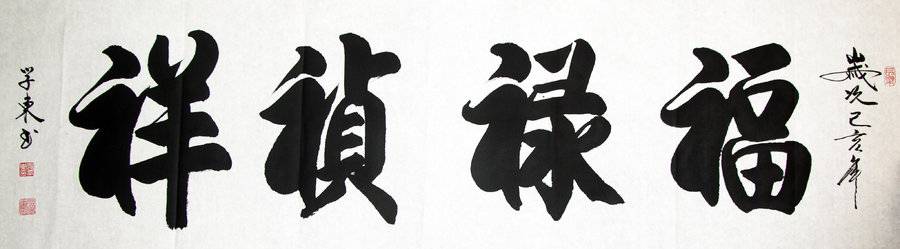 歲次己亥年
福禄祯祥
学東书